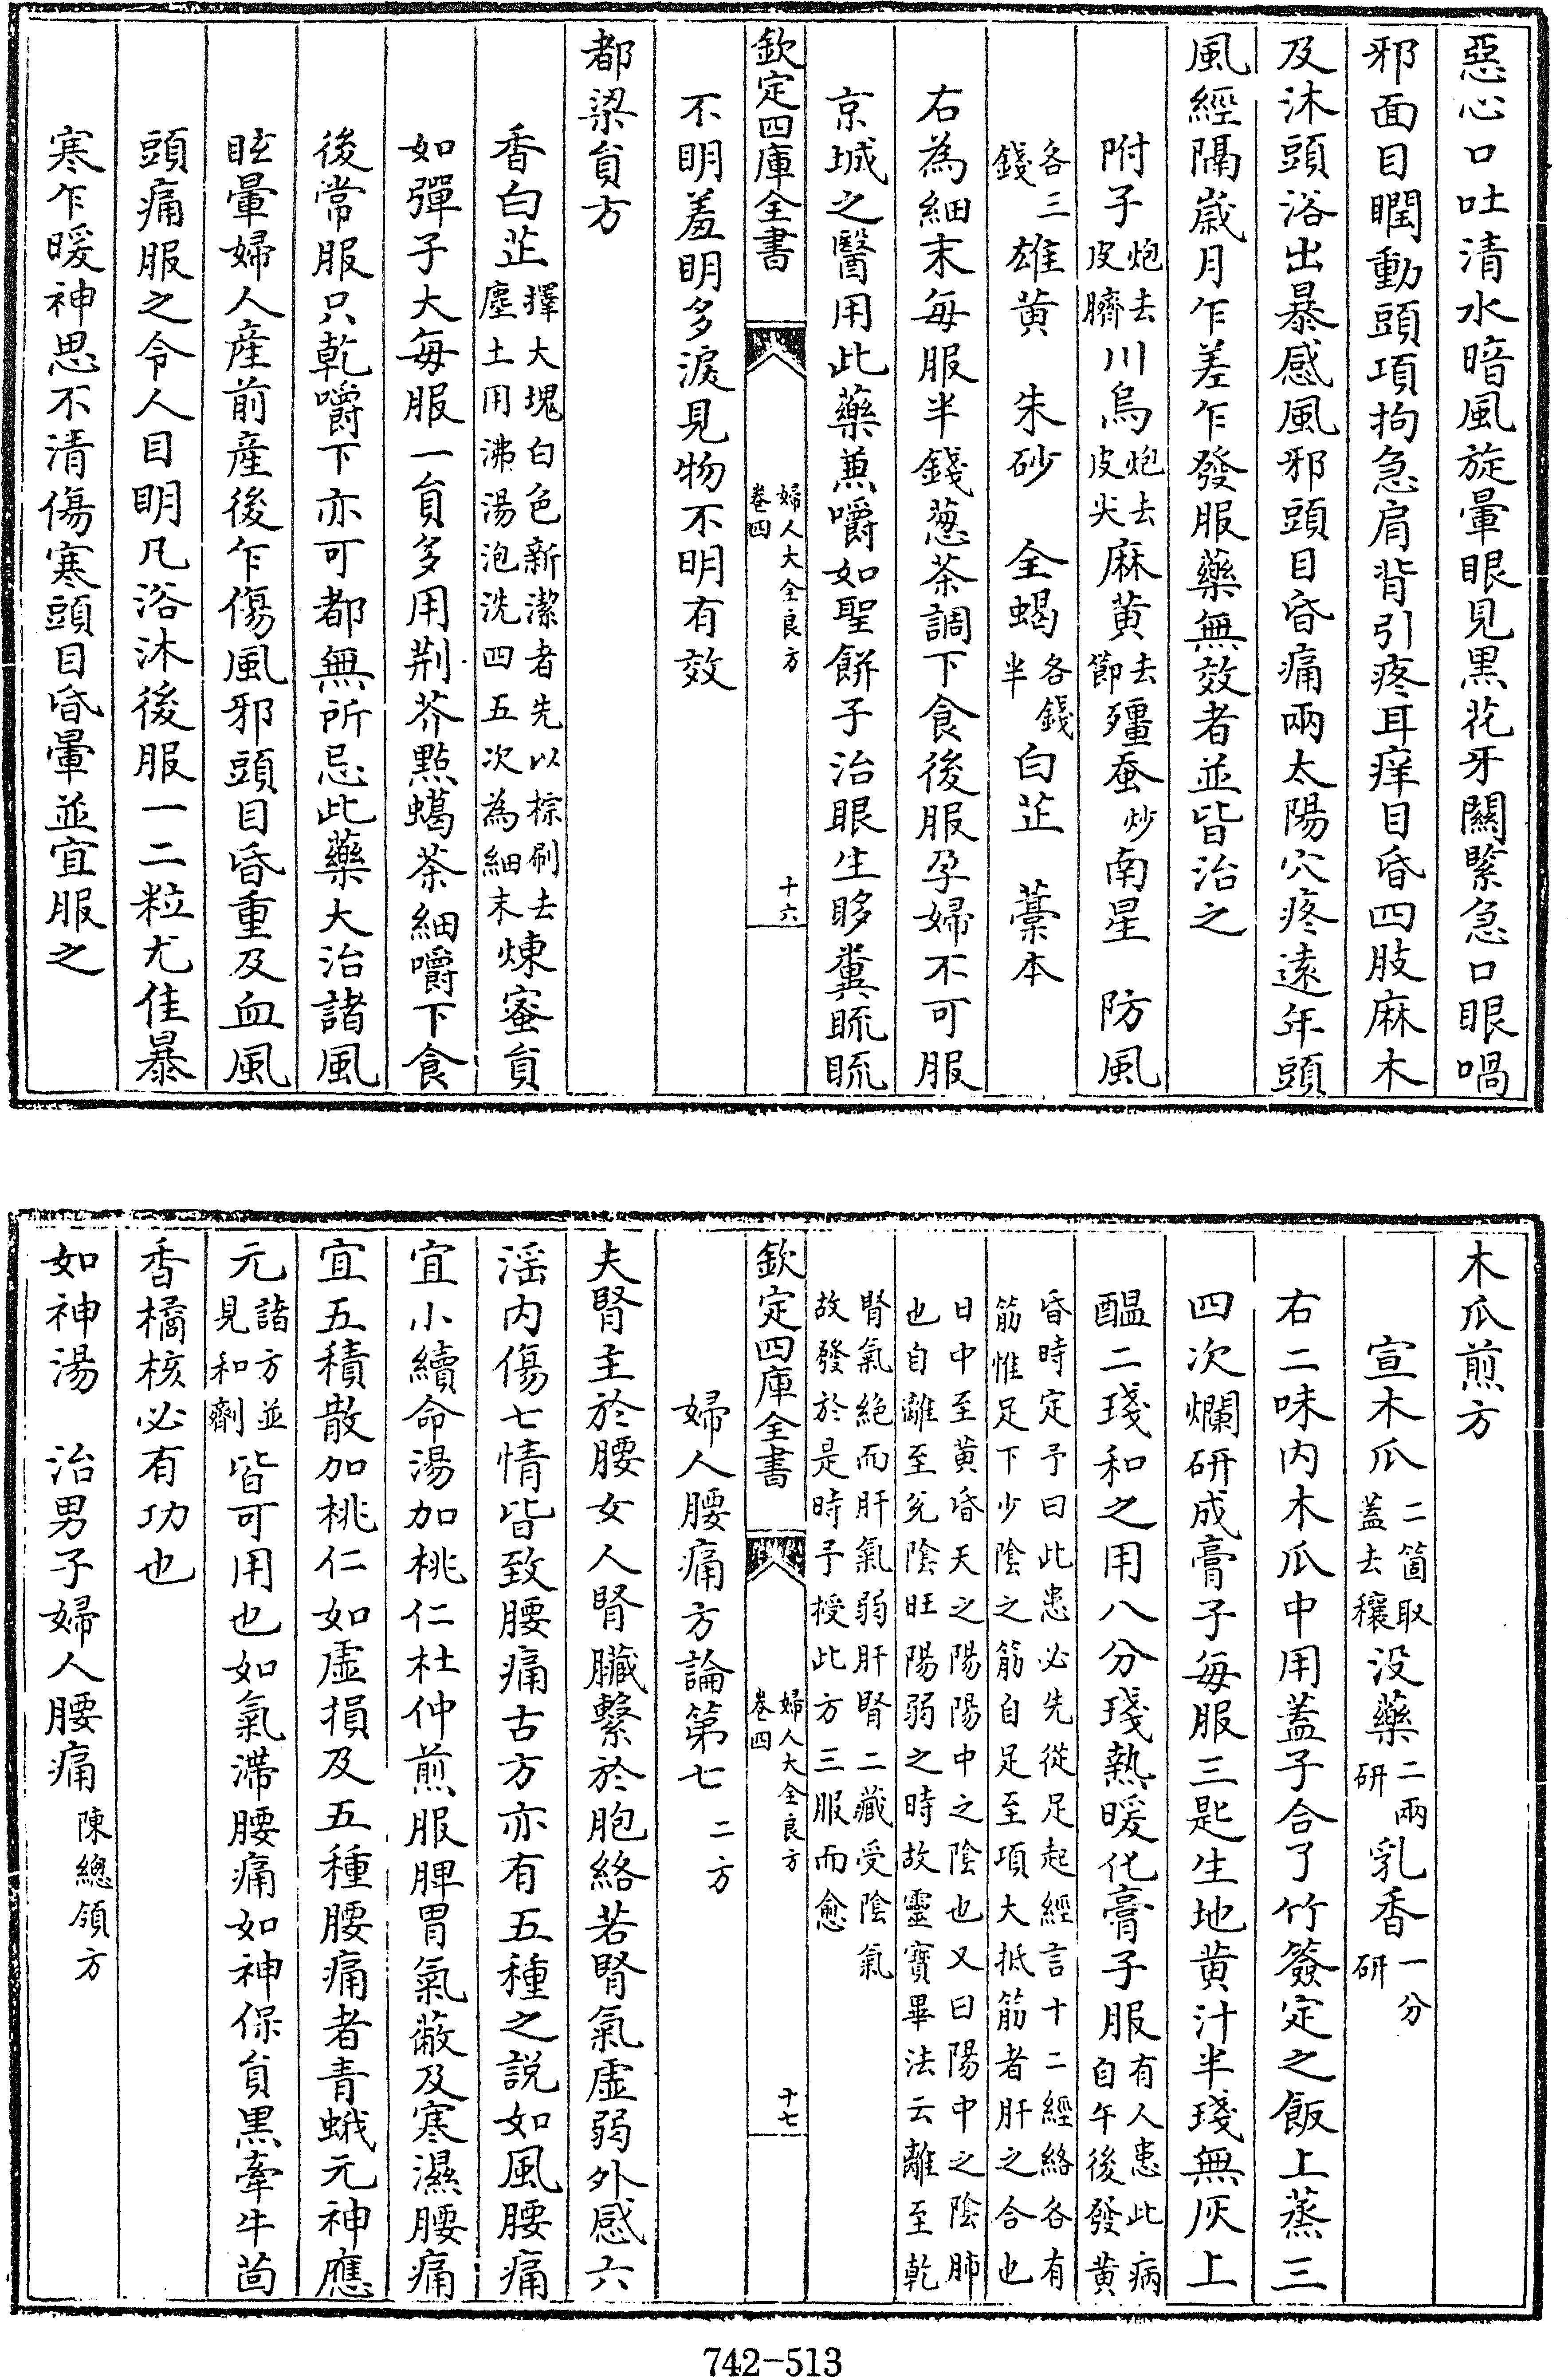 惡心口吐清水暗風旋暈眼見黒花牙關緊急口眼喎
邪面目瞤動頭項拘急肩背引疼耳痒目昏四肢麻木
及沐頭浴出暴感風邪頭目昏痛兩太陽穴疼逺年頭
風經隔嵗月乍差乍發服藥無效者並皆治之
附子炮去皮臍川烏炮去皮尖麻黄去節殭蚕炒南星　防風
各三錢雄黄　朱砂　全蝎各錢半白芷　藁本
右為細末每服半錢葱茶調下食後服孕婦不可服
京城之醫用此藥兼嚼如聖餅子治眼生眵糞䀮䀮
欽定四庫全書　婦人大全良方卷四　十六
不明羞明多淚見物不明有效
都梁貟方
香白芷擇大塊白色新潔者先以棕刷去塵土用沸湯泡洗四五次為細末煉蜜貟
如彈子大每服一貟多用荆芥㸃蠟茶細嚼下食
後常服只乾嚼下亦可都無所忌此藥大治諸風
眩暈婦人産前産後乍傷風邪頭目昏重及血風
頭痛服之令人目明凡浴沐後服一二粒尤佳暴
寒乍暖神思不清傷寒頭目昏暈並宜服之
木瓜煎方
宣木瓜二箇取蓋去穰没藥二兩研乳香一分研
右二味内木瓜中用蓋子合了竹簽定之飯上蒸三
四次爛研成膏子每服三匙生地黄汁半琖無灰上
醖二琖和之用八分琖熱暖化膏子服有人患此病自午後發黄
昏時定予曰此患必先從足起經言十二經絡各有筋惟足下少陰之筋自足至項大抵筋者肝之合也
日中至黄昏天之陽陽中之陰也又曰陽中之陰肺也自離至兊陰旺陽弱之時故靈寳畢法云離至乾
腎氣絶而肝氣弱肝腎二藏受陰氣故發於是時予授此方三服而愈
欽定四庫全書　婦人大全良方卷四　十七
婦人腰痛方論第七二方
夫腎主於腰女人腎臟繫於胞絡若腎氣虚弱外感六
滛内傷七情皆致腰痛古方亦有五種之説如風腰痛
宜小續命湯加桃仁杜仲煎服脾胃氣蔽及寒濕腰痛
宜五積散加桃仁如虚損及五種腰痛者青蛾元神應
元諸方並見和劑皆可用也如氣滯腰痛如神保貟黒牽牛茴
香橘核必有功也
如神湯　治男子婦人腰痛陳總領方
742-513